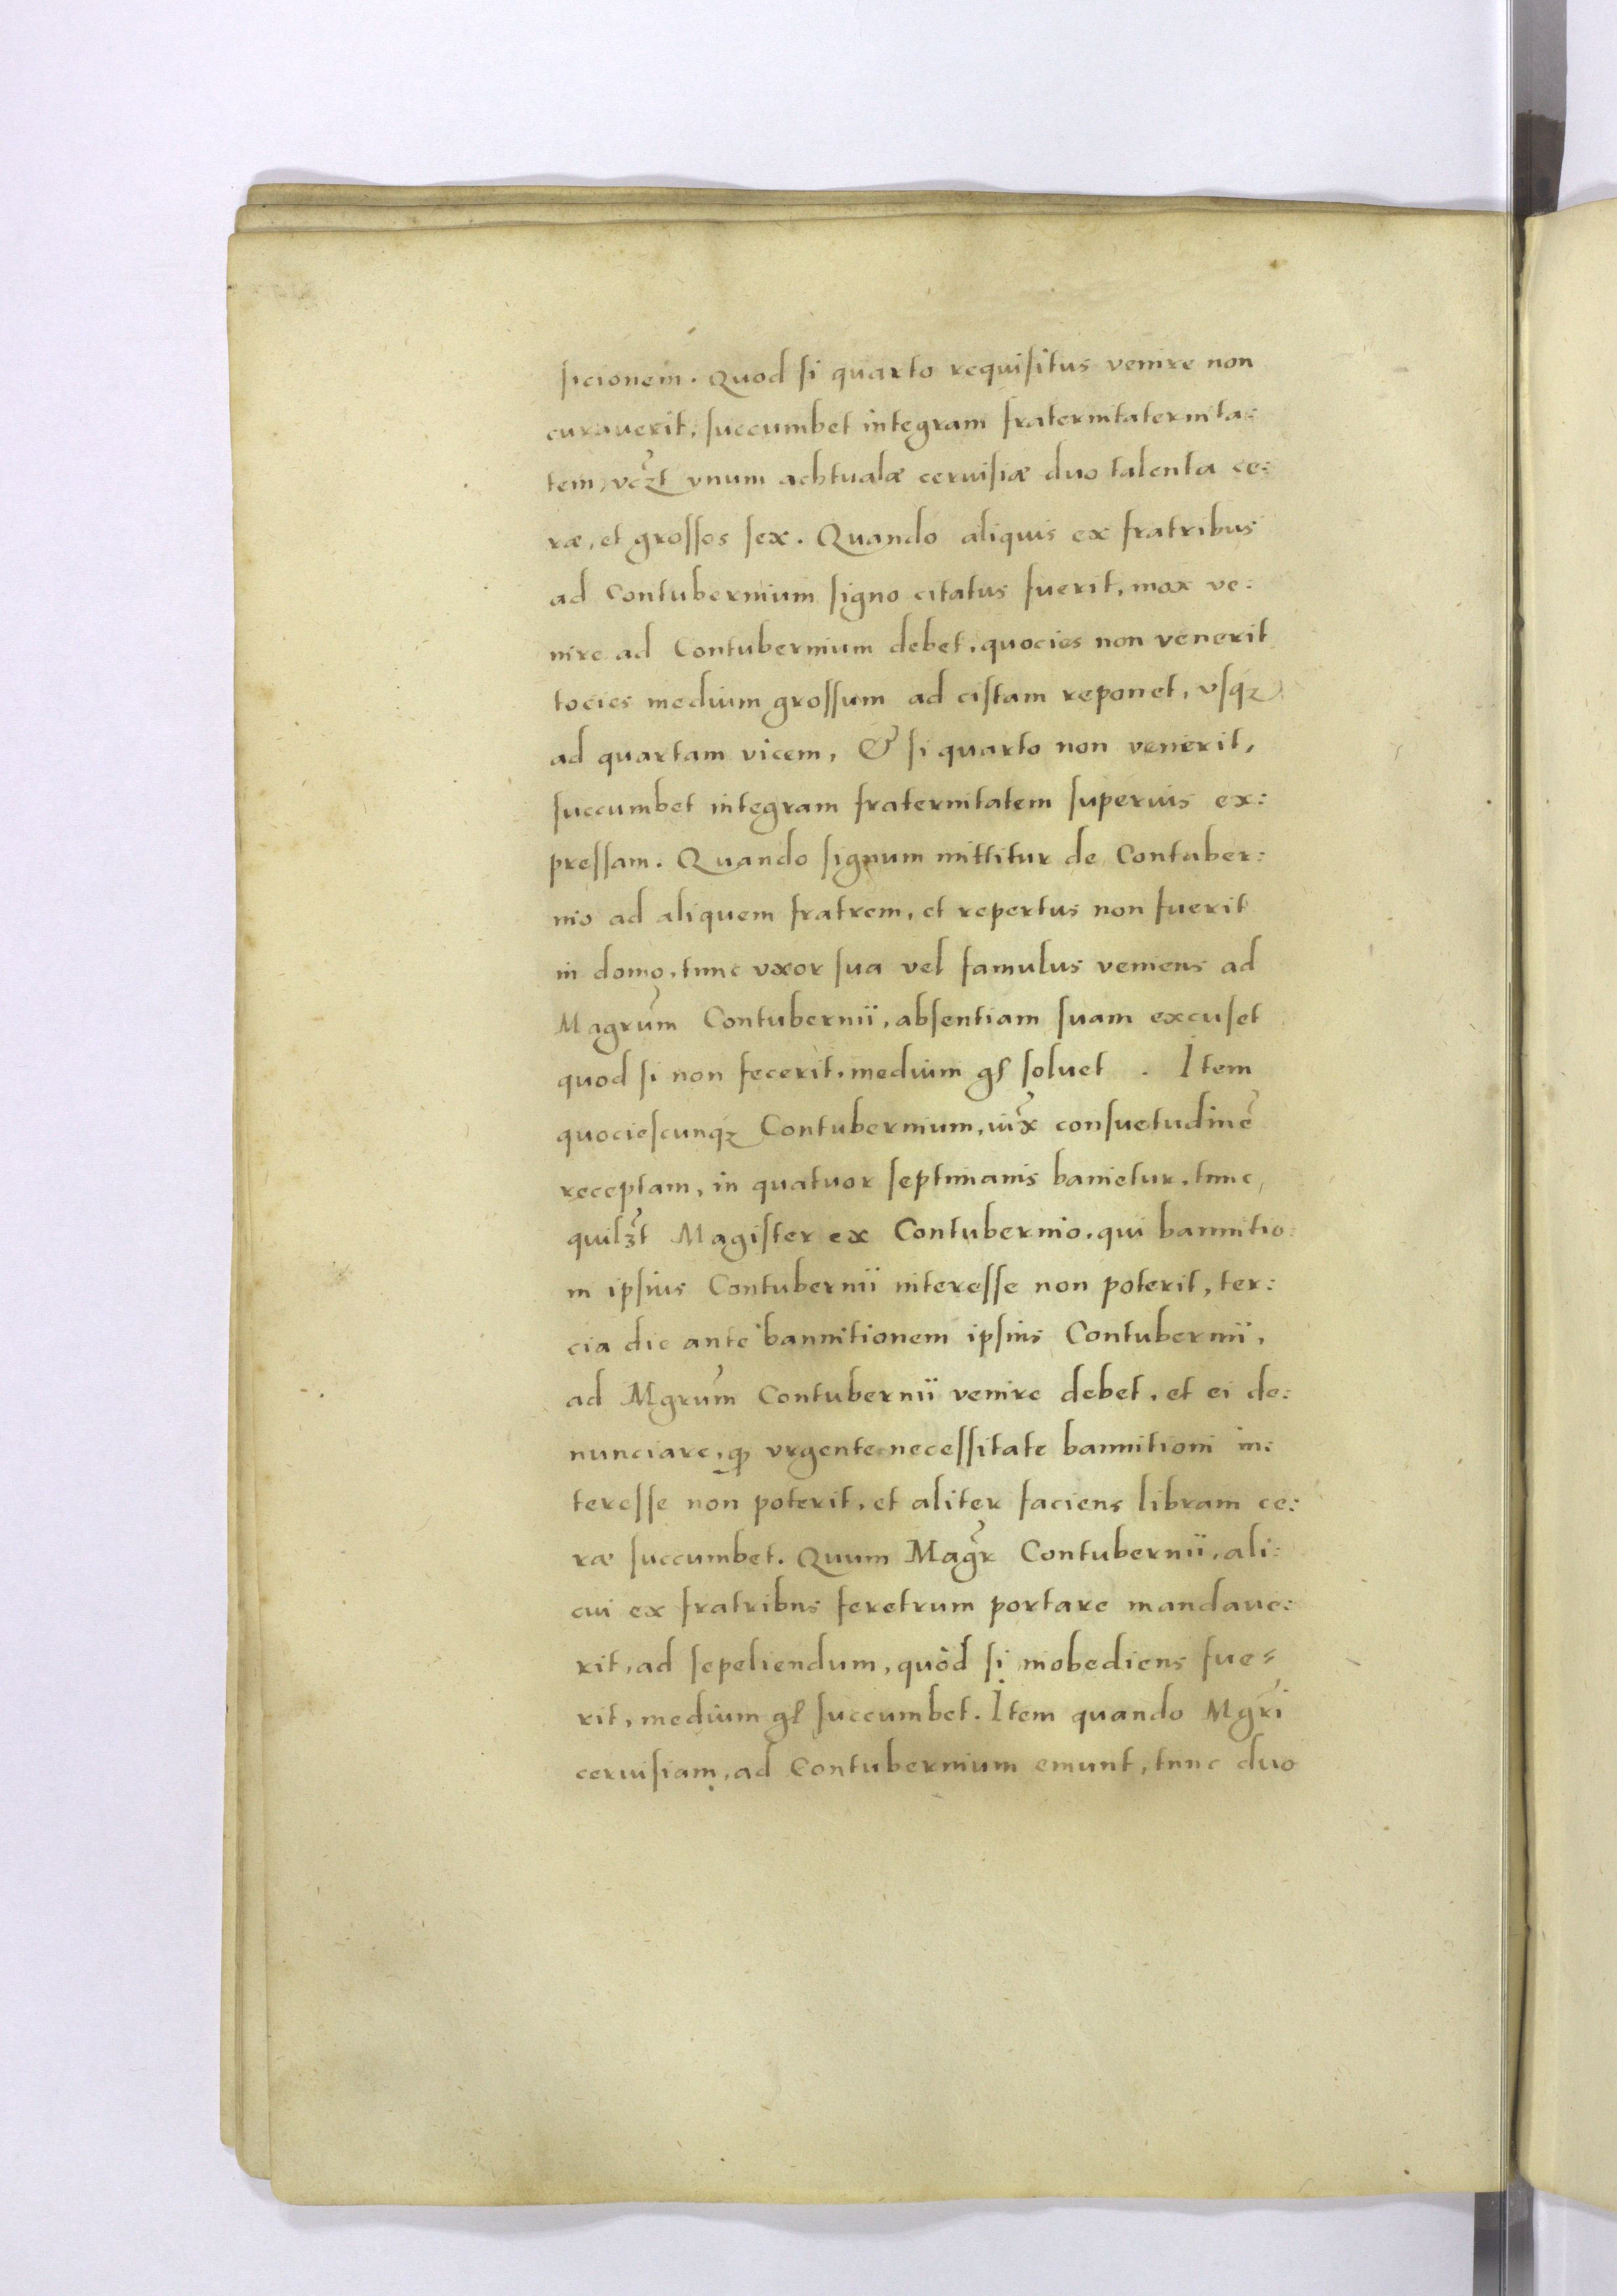 sicionem. Quod si quarto requisitus venire non
curauerit, succumbet integram fraternitaternita:
tem, vcz̃t vnum achtualæ ceruisiæ duo talenta ce:
ræ, et grossos sex. Quando aliquis ex fratribus
ad Contubernium signo citatus fuerit, mox ve:
nire ad Contubernium debet, quocies non venerit
tocies medium grossum ad cistam reponet, vsqꝫ
ad quartam vicem, & si quarto non venerit,
succumbet integram fraternitatem superius ex:
pressam. Quando signum mittitur de Contuber:
nio ad aliquem fratrem, et repertus non fuerit
in domo, tunc vxor sua vel famulus veniens ad
Magrum̃ Contubernii, absentiam suam excuset
quod si non fecerit, medium gſ soluet . Item
quociescunqꝫ Contubernium, iux̃ consuetudinẽ
receptam, in quatuor septimanis banietur, tunc,
quilꝫ̃t Magister ex Contubernio, qui bannitio:
ni ipsius Contubernii interesse non poterit, ter:
cia die ante bannitionem ipsius Contubernii,
ad Mgrum̃ Contubernii venire debet, et ei de:
nunciare, ꝙ vrgente necessitate bannitioni in:
teresse non poterit, et aliter faciens libram ce:
ræ succumbet. Quum Mag̃r Contubernii, ali:
cui ex fratribus feretrum portare mandaue:
rit, ad sepeliendum, quòd si inobediens fue:
rit, medium gſ succumbet. Item quando Mgrĩ
ceruisiam, ad Contubernium emunt, tunc duo